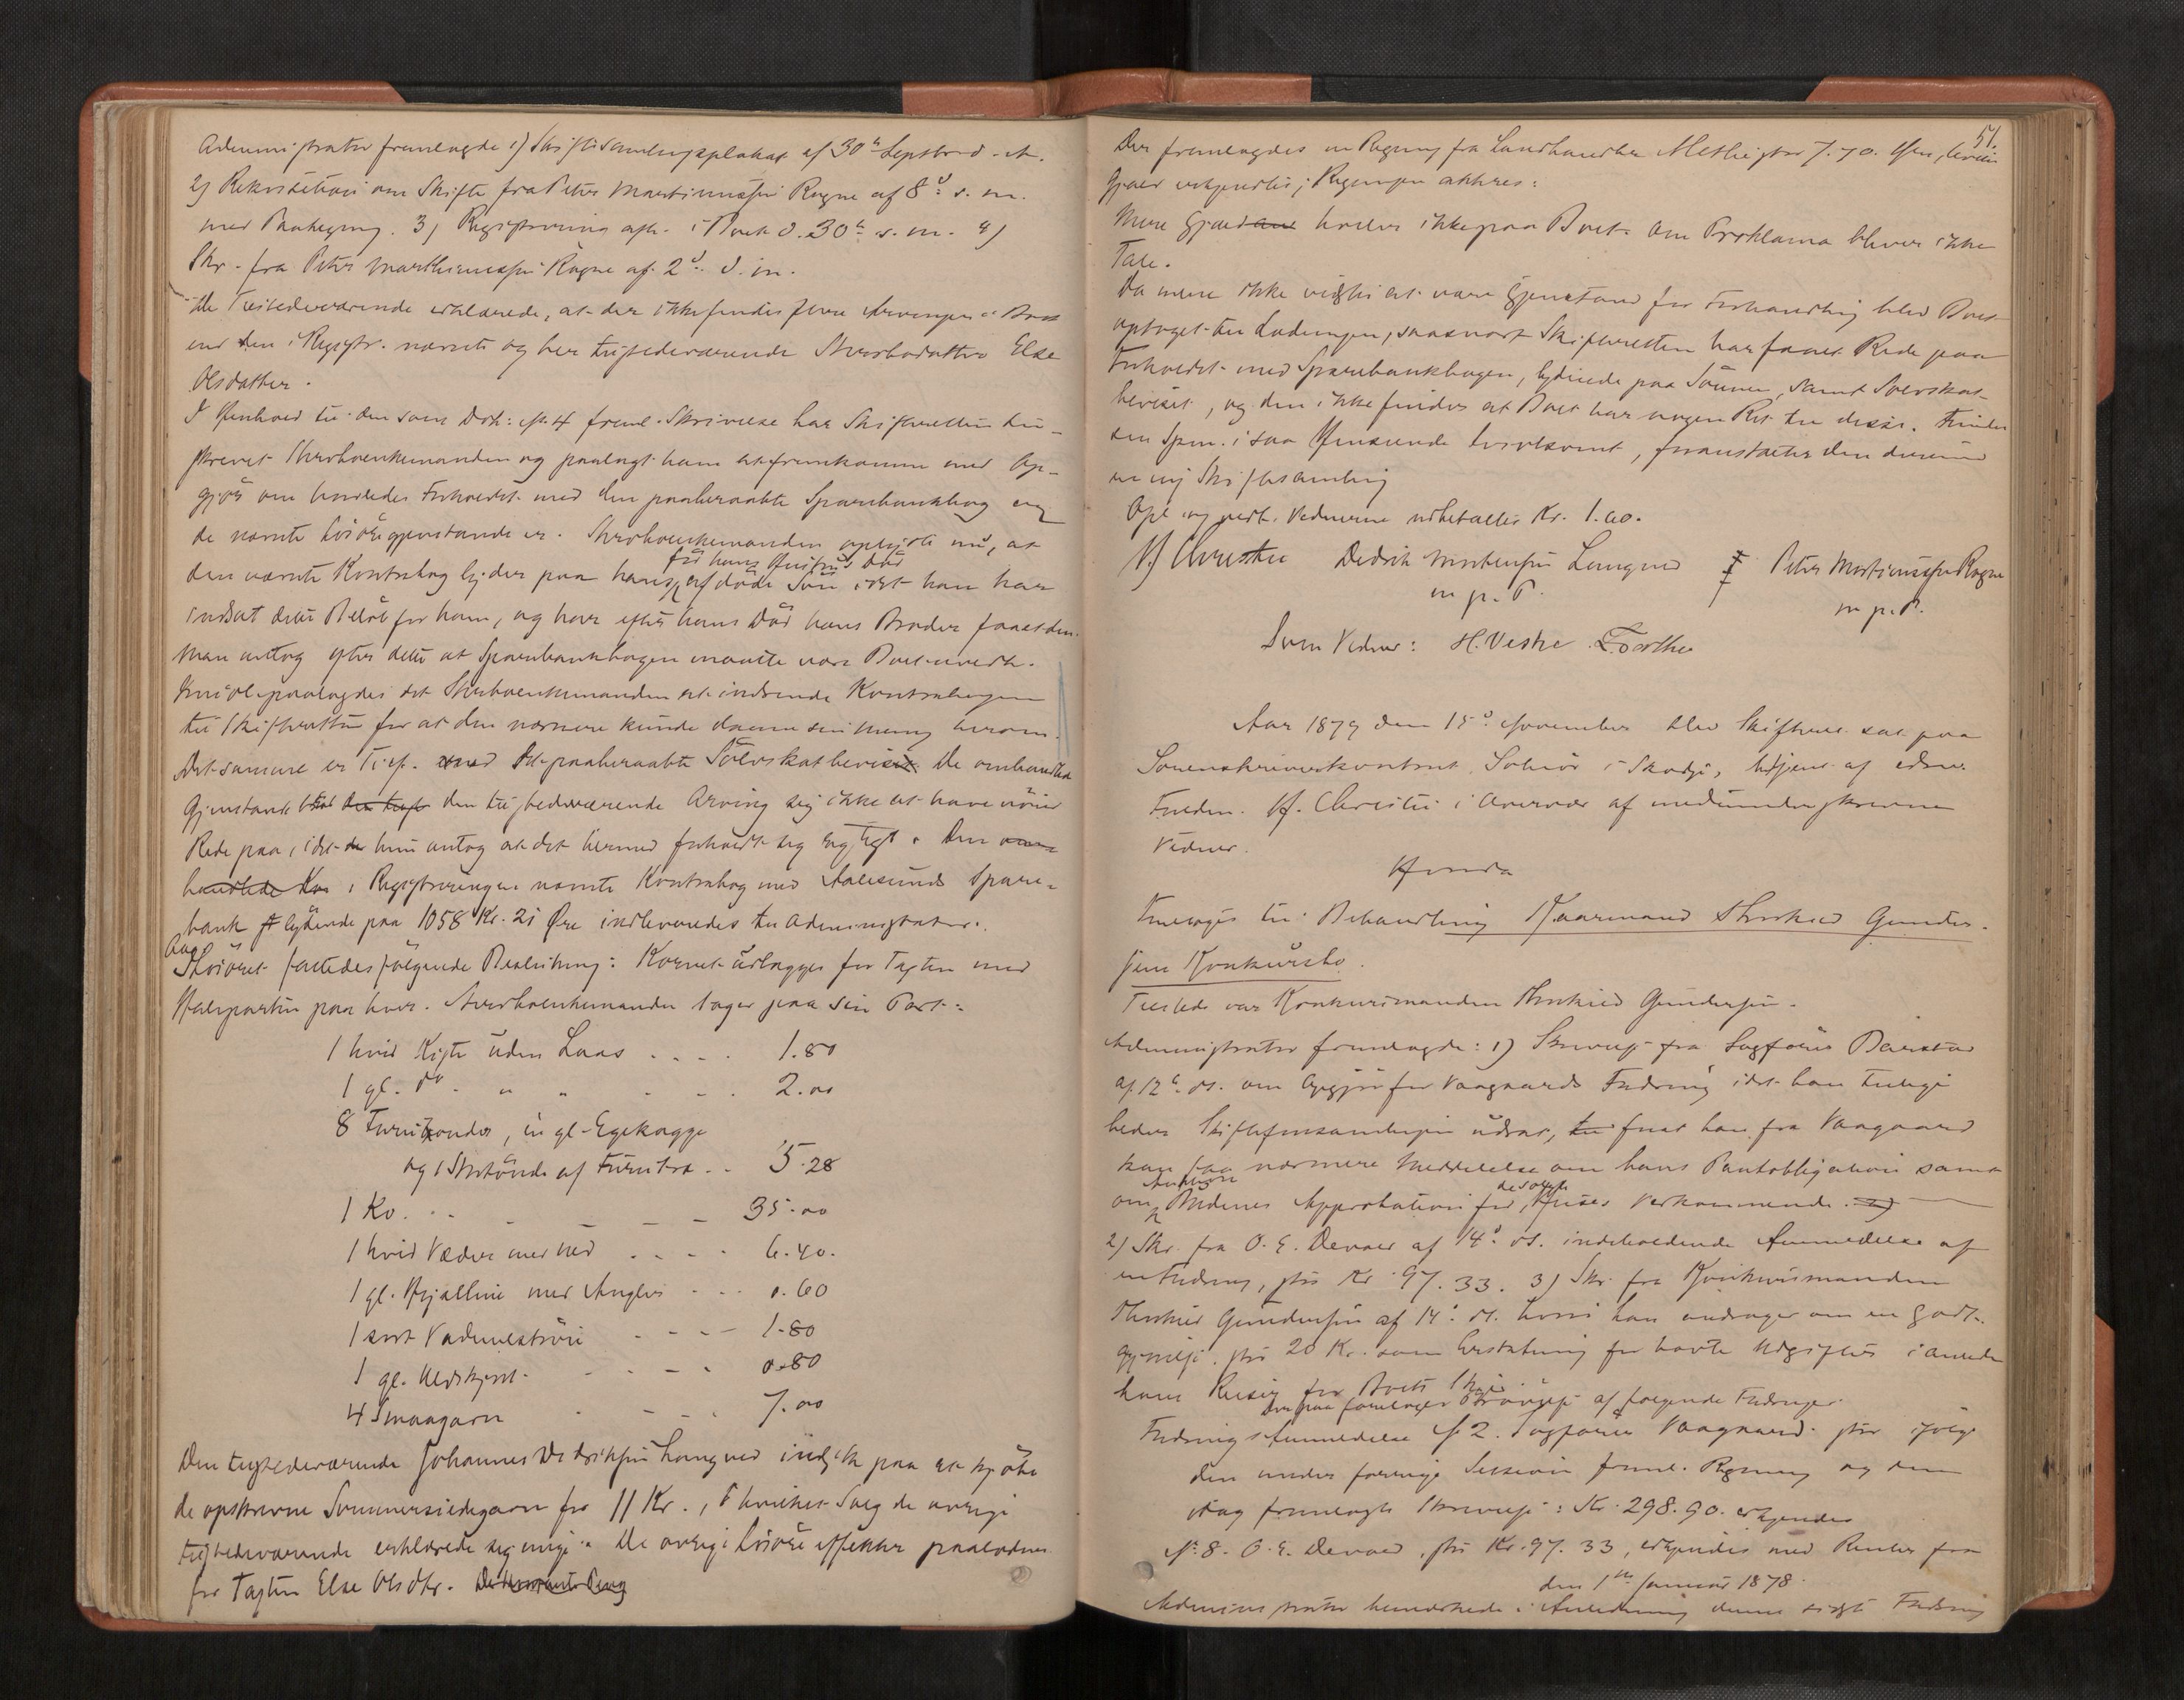 Administrator fremlagde 1) Skiftesamlingsplakat af 30te Septbr d. A.
2) Rekvisition om Skifte fra Peter Martinussen Rogne af 8de s. m.
med Paategning. 3) Registrering afh. i Boet d. 30te s. m. 4)
Skr. fra Peter Marthinussen Rogne af 2den d. m.
De Tilstedeværende erklærede, at der ikke findes flere Arvinger i Boet
end den i Registr. nævnte og her tilstedeværende Stervbodatter Else
Olsdatter.
I Henhold til den som Dok: No. 4 freml. Skrivelse har Skifteretten til-
skrevet Stervboenkemanden og paalagt ham at fremkomme med Op-
gjör om hvorledes Forholdet med den paaberaabte Sparebankbog og
de nævnte Lösöregjenstande er. Stervboenkemanden oplyste nu, at
för hans Hustrus Död
den nævnte Kontrabog lyder paa hans afdöde Sön idet han har
indsat dette Belöb for ham, og har efter hans Död hans Broder faaet den.
Man antog efter dette at Sparebankbogen maatte være Boet uvedk.
Imidl. paalagdes det Stervboenkemanden at indsende Kontrabogen
til Skifteretten for at den nærmere kunde danne sin Mening herom.
Det samme er Tilf. med det paaberaabte Sölvskatbevis. De omhandlede
Gjenstande den tilstedeværende Arving sig ikke at have nöiere
Rede paa, idet hun antog at det hermed forholdt sig rigtigt. Den
i Registreringen nævnte Kontrabog med Aalesunds Spare-
bank lydende paa 1058 Kr. 21 Øre indleveredes til Administrator.
Ang.
Lösöret fattedes fölgende Beslutning: Kornet udlægges for Taxten med
Halvparten paa hver. Stervboenkemanden tager paa sin Part:
1 hvid Kiste uden Laas . . . . 1.80
1 gl. do. " " . . . 2.00
8 Furutönder, en gl. Egekagge
og 1 Skröönde af Furutræ . . 5.28
1 Ko. . . - - - - 35.00
1 hvid Væder med ved . . . . 6.40.
1 gl. Hjælline med Angler . . . 0.60
1 sort Vadmelströie . . - - 1.80
1 gl. Uldskjort. . . - . 0.80
4 Smaagarn . - - . 7.00
Den tilstedeværende Johannes Dedriksen Langved indgik paa at kjöbe
de opskrevne Sommersildegarn for 11 Kr., i hvilket Salg de övrige
tilstedeværende erklærede sig enige. De övrige Lösöreeffekter paalodnes
for Taxten Else Olsdtr.
51.
Der fremlagdes en Regning fra Landhandler Methi stor 7.70.
Gjæld vedkjendtes; Regningen akteres:
Mere Gjæld hviler ikke paa Boet. Om Proklama bliver ikke
Tale.
Da mere ikke vidstes at være Gjenstand for Forhandling blev Boet
optaget til Slutningen, saasnart Skifteretten har faaet Rede paa
Forholdet med Sparebankbogen, lydende paa Sönnen, samt Sölvskat-
beviset, og den ikke finder at Boet har nogen Ret til disse. Finder
den Spm. i saa Henseende tvivlsomt, foranstalter den derimod
en ny Skiftesamling
Opl. og vedt. Vidnerne udbetaltes Kr. 1.60.
H. Christie Dedrik Mortensen Langved Peter Martinussen Rogne
m. p. P. m. p. P.
Som Vidner: H. Vestre
Aar 1879 den 15de November blev Skifteret sat paa
Sorenskriverkontoret Solnör i Skodje, betjent af edsv.
Fuldm. H. Christie i Overvær af medunderskrevne
Vidner.
Hvorda
Foretoges til Behandling Gaarmand Thorkild Gunder-
sens Konkursbo.
Tilstede var Konkursmanden Thorkild Gundersen.
Administrator fremlagde: 1) Skrivelse fra Sagförer
af 12te ds. om Opgjör for Vaagaards Fordring idet han tillige
beder Skifteforsamlingen udsat, forat han fra Vaagaard
kan faa nærmere Meddelelse om hans Pantobligation samt
Auktions de solgte
om Budenes Approbation for Huses Vedkommende.
2) Skr. fra O. E. Devold af 14de ds. indeholdende Anmeldelse af
en Fordring, stor Kr. 97.33. 3) Skr. fra Konkursmanden
Thorkild Gundersen af 14de ds. hvori han andrager om en Godt-
gjörelse stor 20 Kr. som Erstatning for havte Udgifter i Anledn.
hans Reiser for Boets Skyld.
Derpaa foretoges Prövelse af fölgende Fordringer.
Fordrings Anmeldelse No 2. Sagförer Vaagaard. stor ifölge
den under forrige Session freml. Regning og den
idag fremlagte Skrivelse: Kr. 298.90. erkjendes
No. 8. O. E. Devold, stor Kr. 97.33, erkjendes med Renter fra
den 1ste Januar 1878.
Administrator bemærkede i Anledning denne sidste Fordring